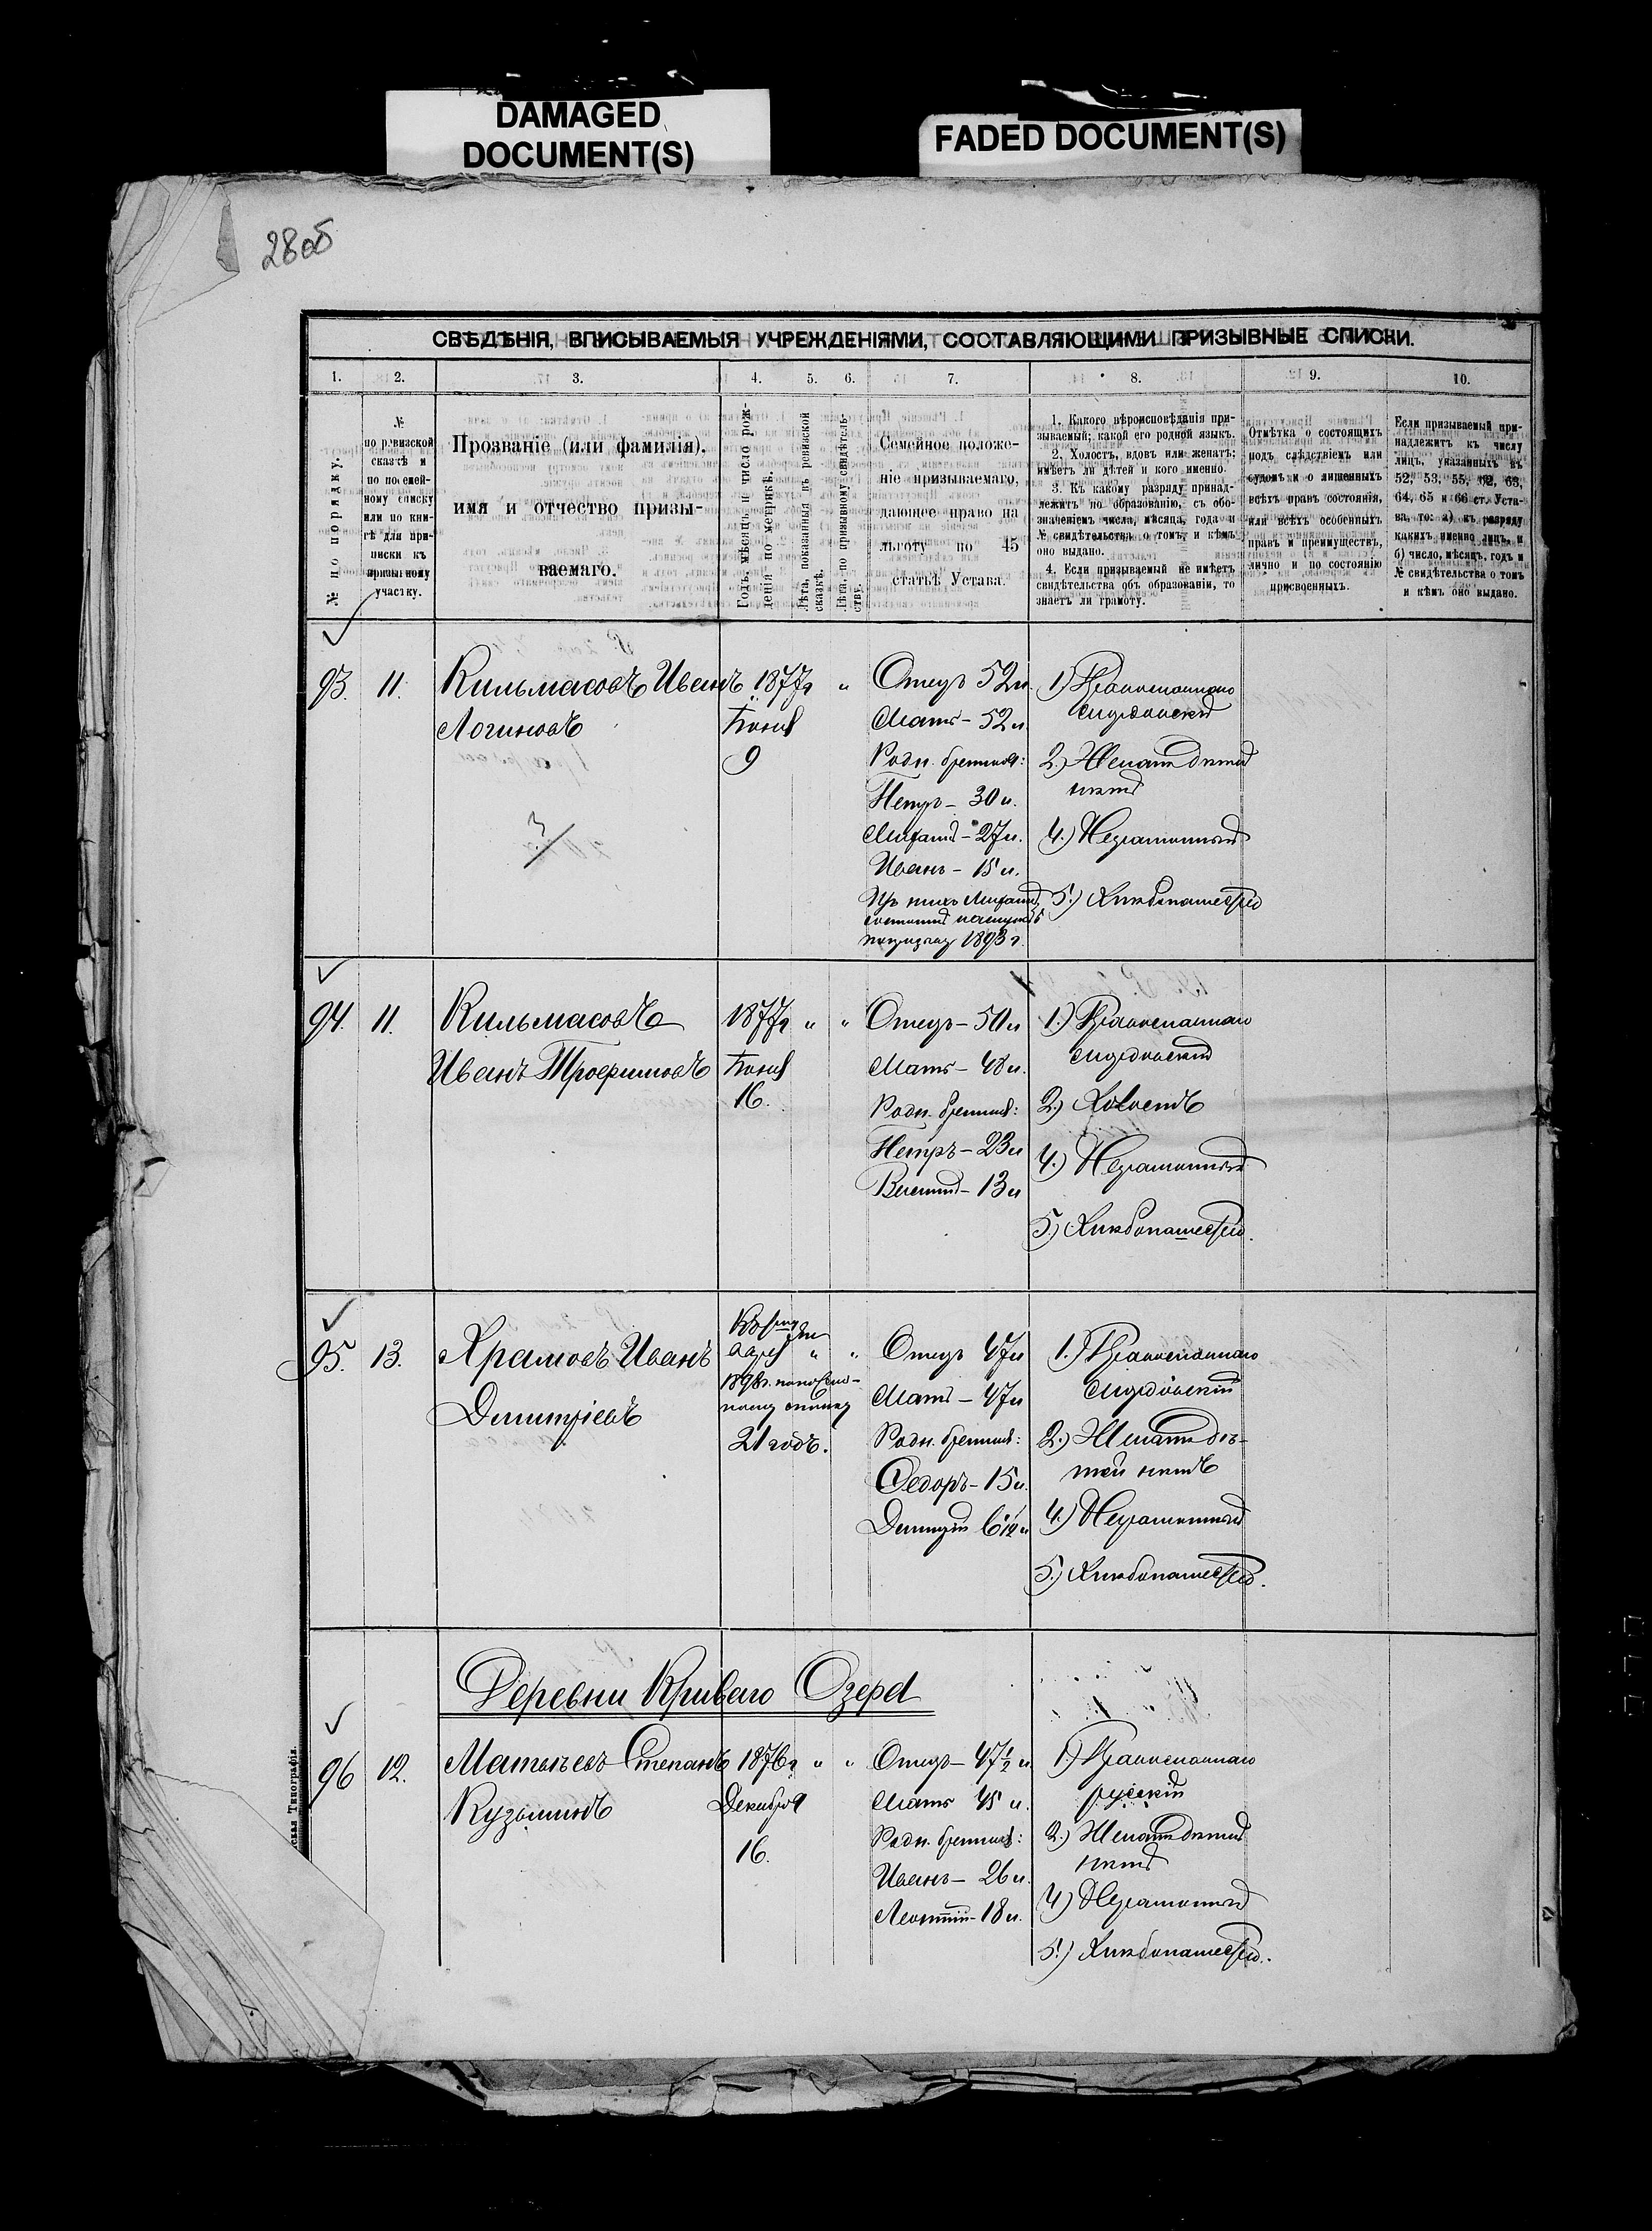 DAMAGED
DOCUMENT(S)
FADED DOCUMENT(S)
28об
СВѢДѢНІЯ, ВПИСЫВАЕМЫЯ УЧРЕЖДЕНІЯМИ, СОСТАВЛЯЮЩИМИ ПРИЗЫВНЫЕ СПИСКИ.
1. 2. 3. 4. 5. 6. 7. 8. 9. 10.
№ по порядку.
№
по ревизской
сказкѣ и
по посемей-
ному списку
или по кни-
гѣ для при-
писки къ
призывному
участку.
Прозваніе (или фамилія),
имя и отчество призы-
ваемаго.
Годъ, мѣсяцъ и число рож-
денія по метрикѣ.
Лѣта, показанныя въ ревизской
сказкѣ.
Лѣта, по призывному свидѣтель-
ству.
Семейное положе-
ніе призываемаго,
дающее право на
льготу по 45
статьѣ Устава.
1. Какого вѣроисповѣданія при-
зываемый; какой его родной языкъ.
2. Холостъ, вдовъ или женатъ;
имѣетъ ли дѣтей и кого именно.
3. Къ какому разряду принад-
лежитъ по образованію, съ обо-
значеніемъ числа, мѣсяца, года и
№ свидѣтельства о томъ, и кѣмъ
оно выдано.
4. Если призываемый не имѣетъ
свидѣтельства объ образованіи, то
знаетъ ли грамоту.
Отмѣтка о состоящихъ
подъ слѣдствіемъ или
судомъ и о лишенныхъ
всѣхъ правъ состоянія,
или всѣхъ особенныхъ
правъ и преимуществъ,
лично и по состоянію
присвоенныхъ.
Если призываемый при-
надлежитъ къ числу
лицъ, указанныхъ въ
52, 53, 55, 62, 63,
64, 65 и 66 ст. Уста-
ва, то: а) къ разряду
какихъ именно лицъ, и
б) число, мѣсяцъ, годъ и
№ свидѣтельства о томъ
и кѣмъ оно выдано.
93. 11.
Кильмасовъ Иванъ
Логиновъ
1877г "
Іюня
9
Отецъ 52л.
Мать - 52л.
Родн. братья:
Петръ - 30л.
Михаилъ - 27л.
Иванъ - 15л.
Изъ нихъ Михаилъ
1893г.
1) Православнаго
мордовскій
2.) Женатъ дѣтей
нѣтъ
4.) Неграмотный
5.) Хлѣбопашество
94. 11.
Кильмасовъ
Иванъ Трофимовъ
1877г " "
Іюня
16.
Отецъ - 50л
Мать - 48л.
Родн. братья:
Петръ - 23л
13л
1.) Православнаго
мордовскій
2.) Холостъ
4.) Неграмотный
5.) Хлѣбопашество.
95. 13.
Храмовъ Иванъ
Димитріевъ
" "
1898г.
21 годъ.
Отецъ 47л
Мать - 47л
Родн. братья:
Федоръ - 15л.
Димитрій
1.) Православнаго
мордовскій
2.) Женатъ дѣ-
тей нѣтъ
4.) Неграмотный
5.) Хлѣбопашество.
Деревни Криваго Озера
96 12.
Матвѣевъ Степанъ
Кузьминъ
1876г " "
Декабря
16.
Отецъ - 47½ л.
Мать 45 л.
Родн. братья:
Иванъ - 26л.
Леонтій - 18л.
1.) Православнаго
русскій
2.) Женатъ дѣтей
нѣтъ
4) Неграмотный
5.) Хлѣбопашество.
ская Типографія.